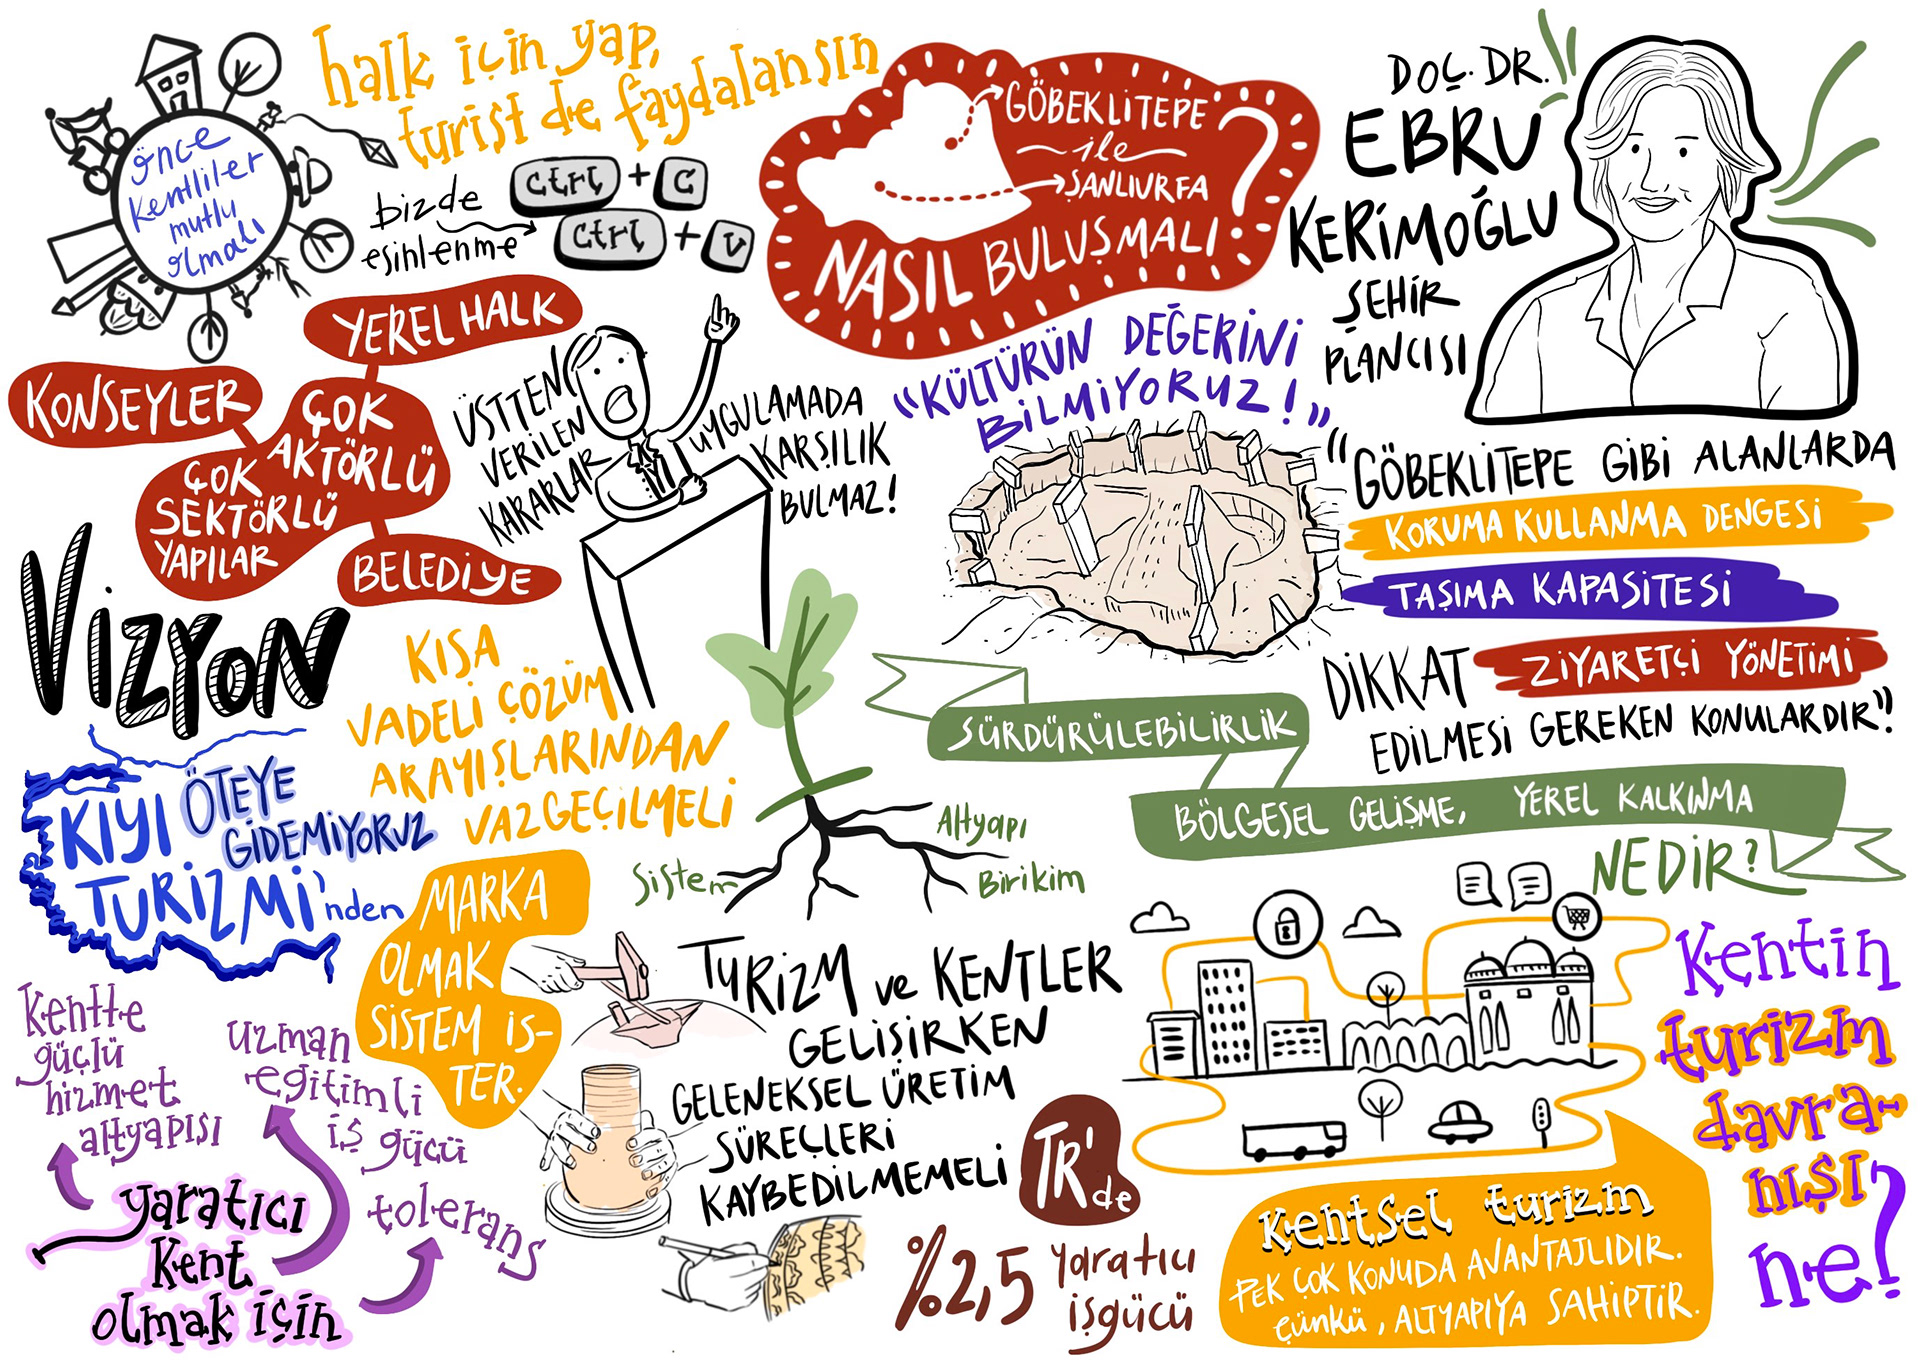 önce
kentliler
mutlu
olmalı
halk için yap,
turist de faydalansın
bizde
esinlenme
ctrl + C
ctrl + v
GÖBEKLİTEPE
ile
ŞANLIURFA
NASIL BULUŞMALI ?
DOÇ. DR.
EBRU
KERİMOĞLU
ŞEHİR
PLANCISI
YEREL HALK
KONSEYLER
ÇOK
AKTÖRLÜ
ÇOK
SEKTÖRLÜ
YAPILAR
BELEDİYE
ÜSTTEN
VERİLEN
KARARLAR
UYGULAMADA
KARŞILIK
BULMAZ!
"KÜLTÜRÜN DEĞERİNİ
BİLMİYORUZ!"
"GÖBEKLİTEPE GİBİ ALANLARDA
KORUMA KULLANMA DENGESİ
TAŞIMA KAPASİTESİ
DİKKAT ZİYARETÇİ YÖNETİMİ
EDİLMESİ GEREKEN KONULARDIR"!
VİZYON
KISA
VADELİ ÇÖZÜM
ARAYIŞLARINDAN
VAZGEÇİLMELİ
KIYI
TURİZMİ'nden
ÖTEYE
GİDEMİYORUZ
Sistem
Altyapı
Birikim
SÜRDÜRÜLEBİLİRLİK
BÖLGESEL GELİŞME, YEREL KALKINMA
NEDİR?
MARKA
OLMAK
SİSTEM İS-
TER.
TURİZM ve KENTLER
GELİŞİRKEN
GELENEKSEL ÜRETİM
SÜREÇLERİ
KAYBEDİLMEMELİ
kentte
güçlü
hizmet
altyapısı
uzman
eğitimli
iş gücü
tolerans
yaratıcı
kent
olmak için
TR'de
%2,5 yaratıcı
işgücü
Kentsel turizm
PEK ÇOK KONUDA AVANTAJLIDIR.
çünkü, ALTYAPIYA SAHİPTİR.
Kentin
turizm
davra-
nışı
ne?